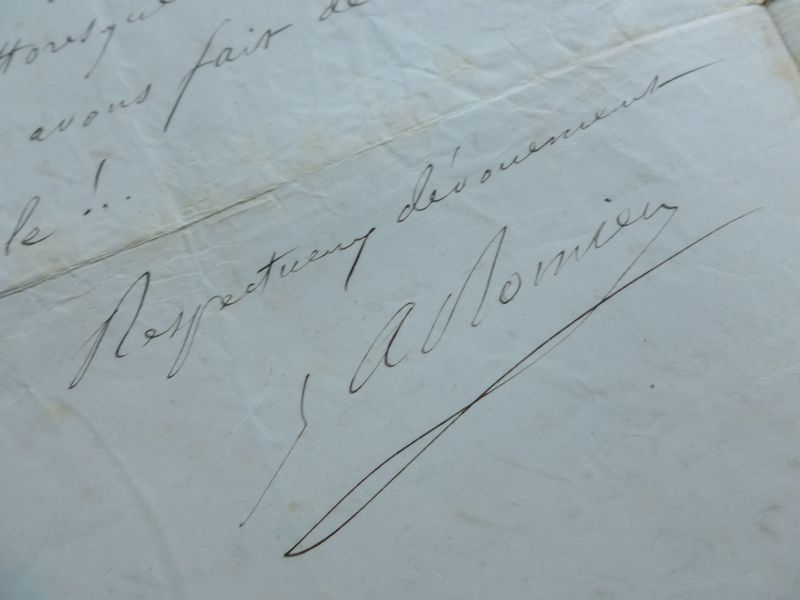 ttoresque
avons fait de
le !..
Respectueux dévouement
A Romieu